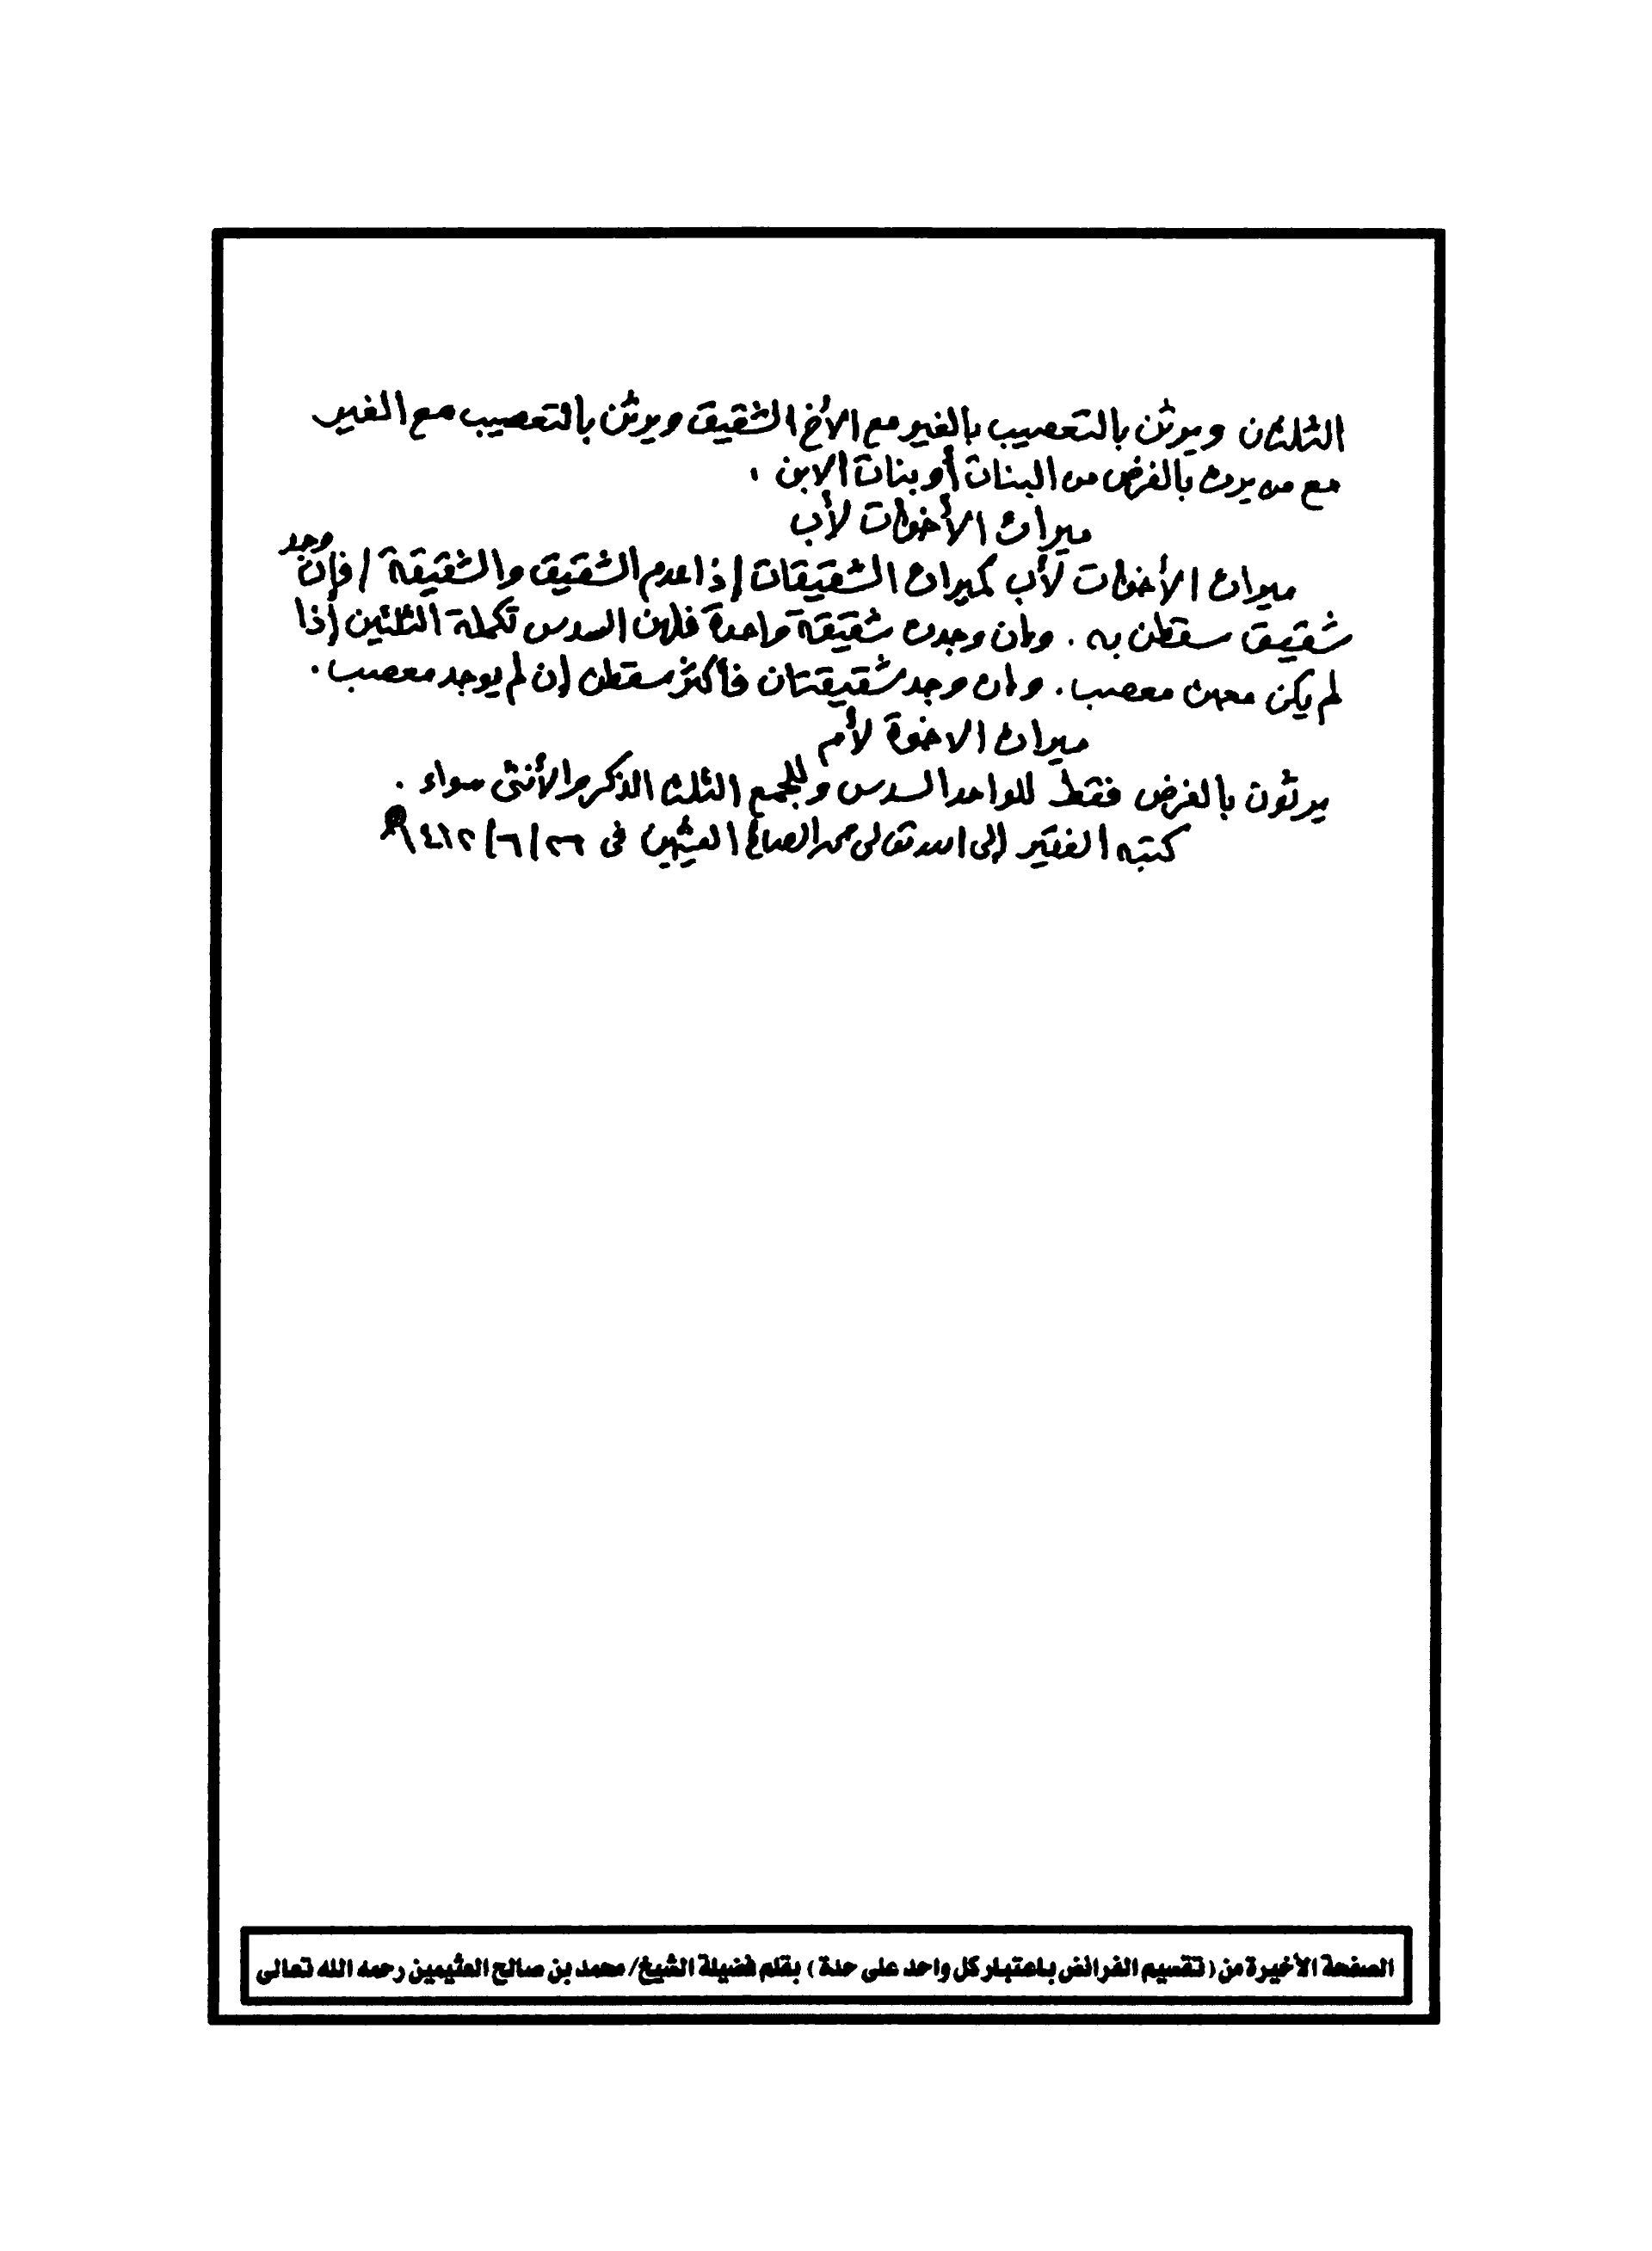 الثلثان ويرثن بالتعصيب بالغير مع الأخ الشقيق ويرثن بالتعصيب مع الغير
مع من يرث بالفرض من البنات أو بنات الابن .
ميراث الأخوات لأب
ميراث الأخوات لأب كميراث الشقيقات إذا عدم الشقيق والشقيقة / فإن وجد
شقيق سقطن به . وإن وجدت شقيقة واحدة فلهن السدس تكملة الثلثين إذا
لم يكن معهن معصب . وإن وجد شقيقتان فأكثر سقطن إن لم يوجد معصب .
ميراث الاخوة لأم
يرثون بالفرض فقط للواحد السدس وللجمع الثلث الذكر والأنثى سواء .
كتبه الفقير إلى الله تعالى محمد الصالح العثيمين في ٢٦/٦/
الصفحة الأخيرة من ( تقسيم الفرائض باعتبار كل واحد على حدة ) بقلم فضيلة الشيخ / محمد بن صالح العثيمين رحمه الله تعالى